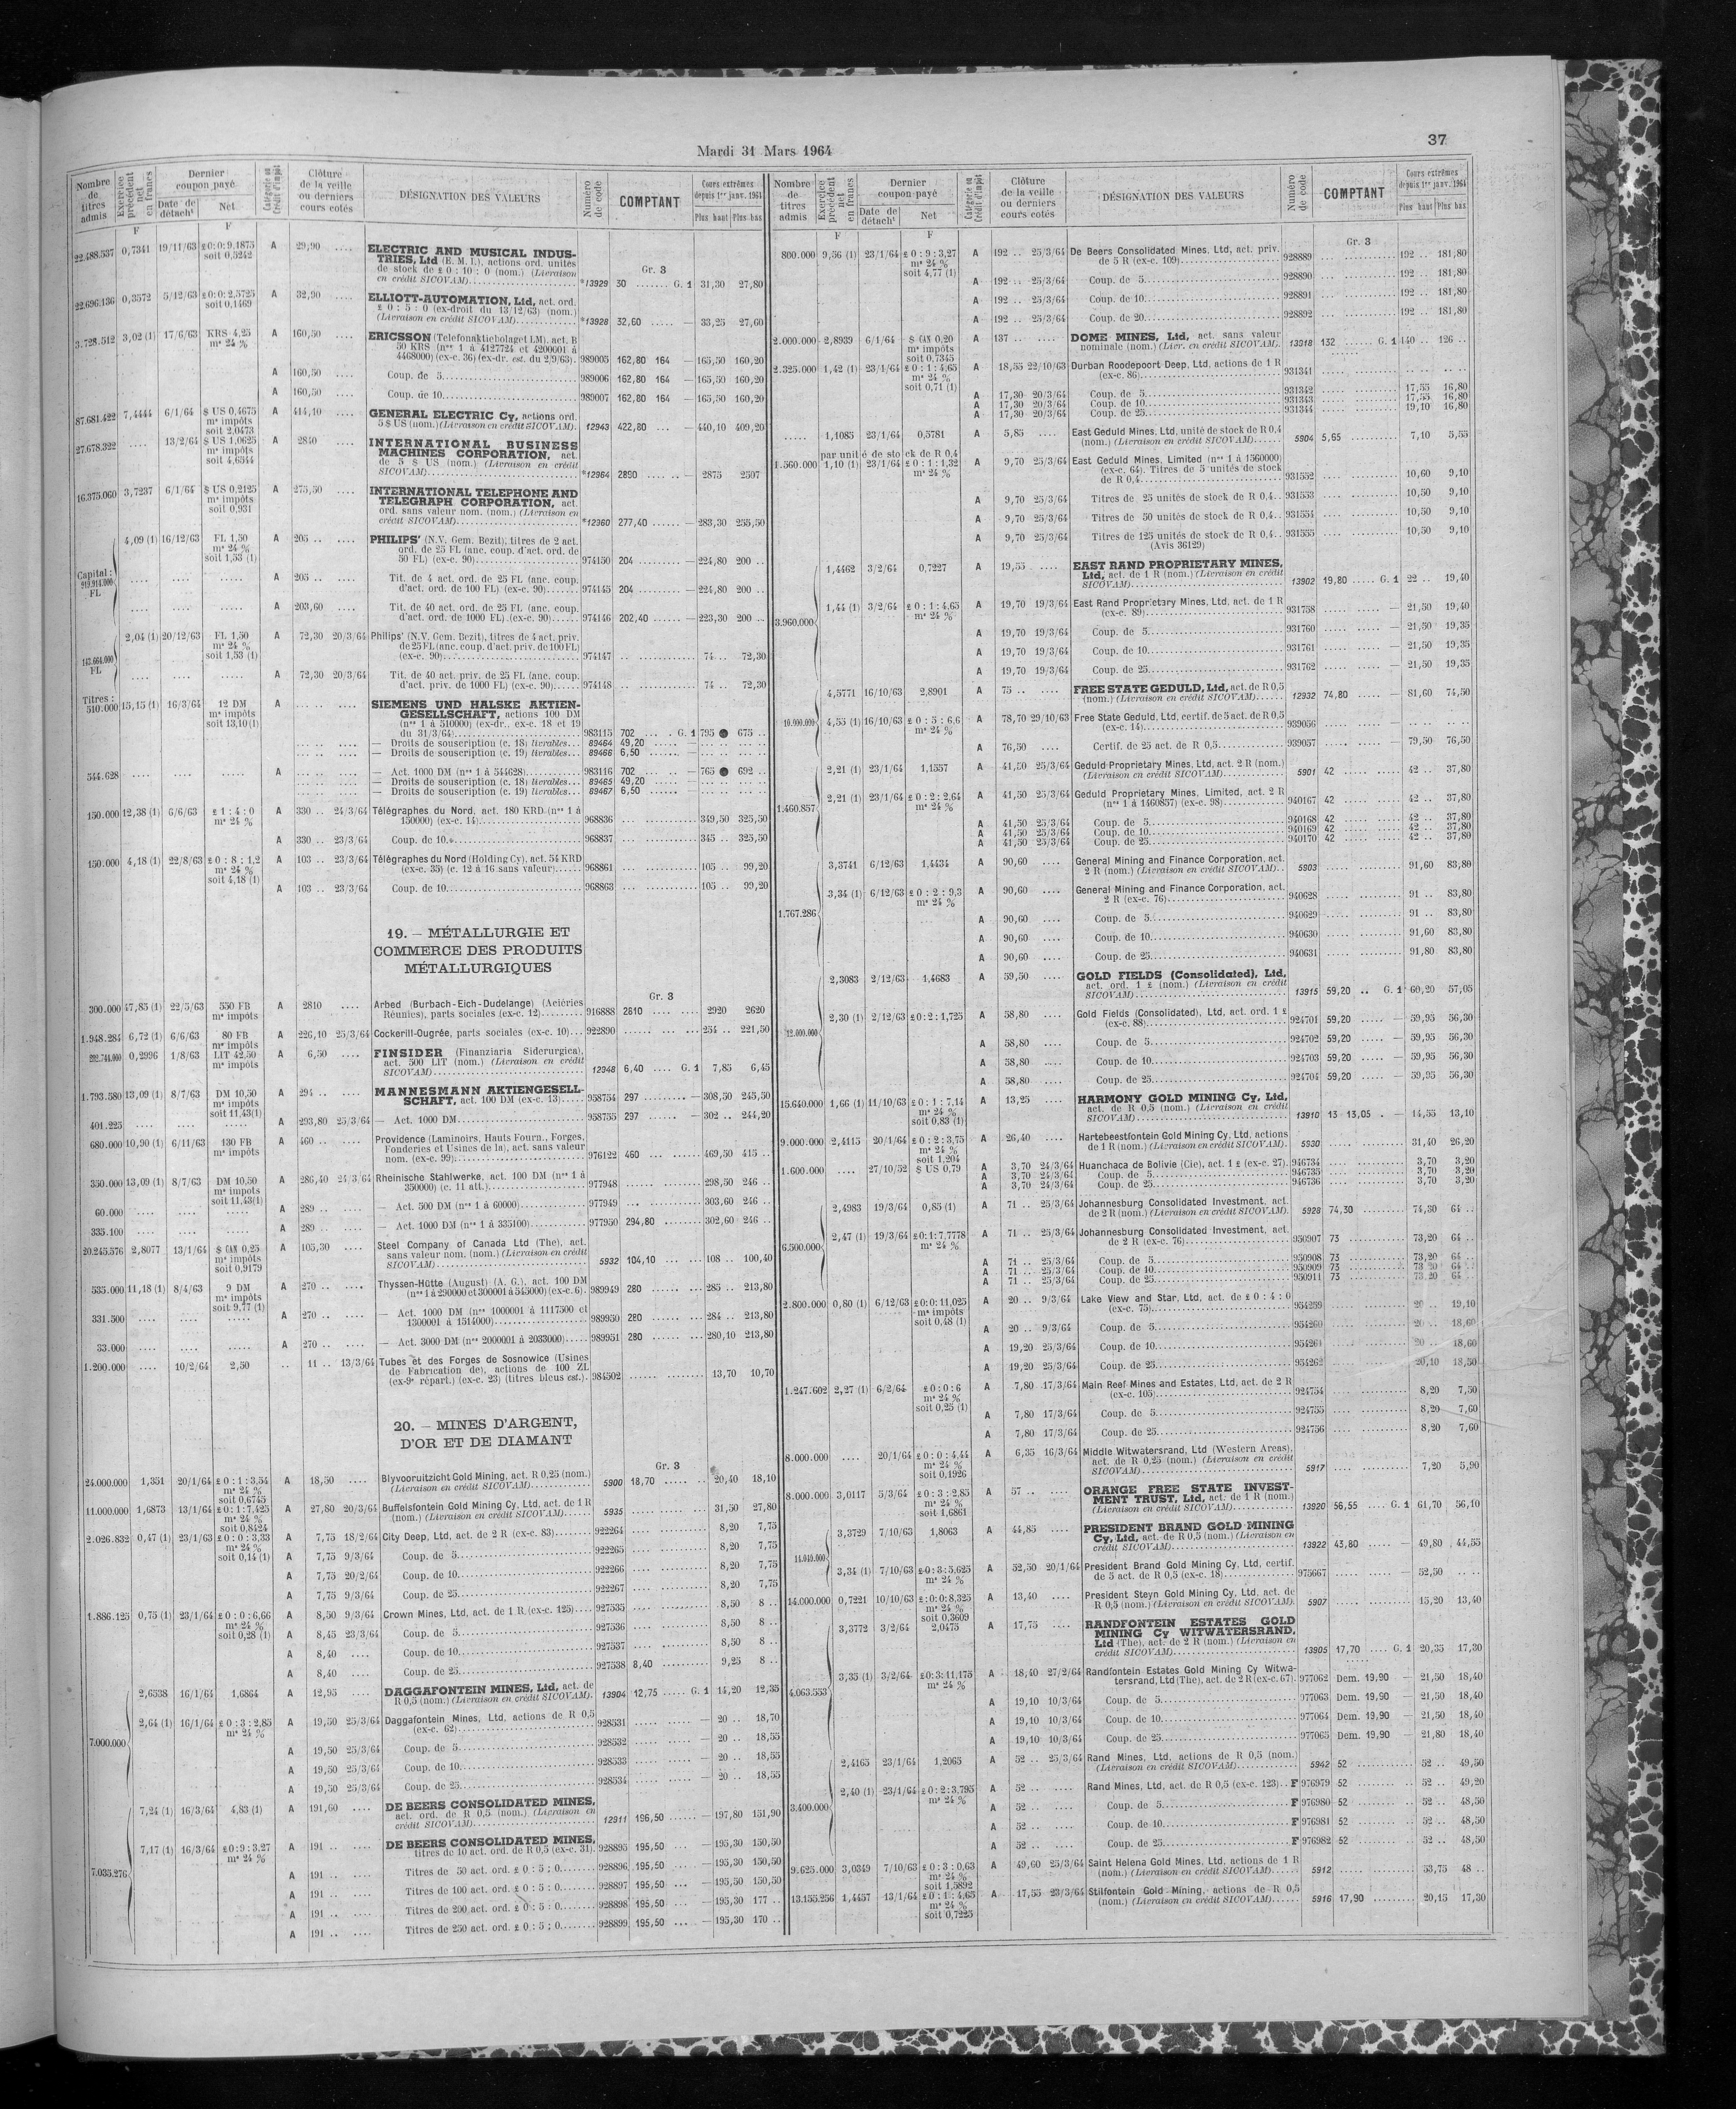 Mardi 31 Mars 1964
37
Nombre de titres admis | Exercice précédent net en francs | Dernier coupon payé | Date de détacht | Net | Catégorie ou Crédit d'impôt | Clôture de la veille ou derniers cours cotés | DÉSIGNATION DES VALEURS | Numéro de code | COMPTANT | Cours extrêmes depuis 1er janv. 1964 | Plus haut | Plus bas
F F
22.488.537 0,7341 19/11/63 £0:0:9,1875 A 29,90 .... ELECTRIC AND MUSICAL INDUS-
soit 0,5242 TRIES, Ltd (E. M. I.), actions ord. unités
de stock de £ 0 : 10 : 0 (nom.) (Livraison Gr. 3
en crédit SICOVAM) *13929 30 G. 1 31,30 27,80
22.696.136 0,3572 5/12/63 £0:0:2,5725 A 32,90 .... ELLIOTT-AUTOMATION, Ltd, act. ord.
soit 0,1469 £ 0 : 5 : 0 (ex-droit du 13/12/63) (nom.)
(Livraison en crédit SICOVAM) *13928 32,60 — 33,25 27,60
3.728.512 3,02 (1) 17/6/63 KRS 4,25 A 160,50 .... ERICSSON (Telefonaktiebolaget LM), act. B
ms 24 % 50 KRS (nos 1 à 4127724 et 4200001 à
4468000) (ex-c. 36) (ex-dr. est. du 2/9/63) 989005 162,80 164 — 165,50 160,20
A 160,50 .... Coup. de 5 989006 162,80 164 — 165,50 160,20
A 160,50 .... Coup. de 10 989007 162,80 164 — 165,50 160,20
87.681.422 7,4444 6/1/64 $ US 0,4675 A 414,10 .... GENERAL ELECTRIC Cy, actions ord.
ms impôts 5 $ US (nom.) (Livraison en crédit SICOVAM). 12943 422,80 — 440,10 409,20
soit 2,0473
27.678.322 .... 13/2/64 $ US 1,0625 A 2840 .... INTERNATIONAL BUSINESS
ms impôts MACHINES CORPORATION, act.
soit 4,6544 de 5 $ US (nom.) (Livraison en crédit
SICOVAM) *12964 2890 — 2875 2507
16.375.060 3,7237 6/1/64 $ US 0,2125 A 275,50 .... INTERNATIONAL TELEPHONE AND
ms impôts TELEGRAPH CORPORATION, act.
soit 0,931 ord. sans valeur nom. (nom.) (Livraison en
crédit SICOVAM) *12360 277,40 — 283,30 255,50
4,09 (1) 16/12/63 FL 1,50 A 205 .. PHILIPS' (N.V. Gem. Bezit), titres de 2 act.
ms 24 % ord. de 25 FL (anc. coup. d'act. ord. de
soit 1,53 (1) 50 FL) (ex-c. 90) 974150 204 — 224,80 200 ..
Capital :
FL
A 205 .. Tit. de 4 act. ord. de 25 FL (anc. coup.
d'act. ord. de 100 FL) (ex-c. 90) 974145 204 — 224,80 200 ..
A 203,60 .... Tit. de 40 act. ord. de 25 FL (anc. coup.
d'act. ord. de 1000 FL) (ex-c. 90) 974146 202,40 — 223,30 200 ..
2,04 (1) 20/12/63 FL 1,50 A 72,30 20/3/64 Philips' (N.V. Gem. Bezit), titres de 4 act. priv.
ms 24 % de 25 FL (anc. coup. d'act. priv. de 100 FL)
soit 1,53 (1) (ex-c. 90) 974147 74 .. 72,30
FL
A 72,30 20/3/64 Tit. de 40 act. priv. de 25 FL (anc. coup.
d'act. priv. de 1000 FL) (ex-c. 90) 974148 74 .. 72,30
Titres :
510.000 15,15 (1) 16/3/64 12 DM A SIEMENS UND HALSKE AKTIEN-
ms impôts GESELLSCHAFT, actions 100 DM
soit 13,10 (1) (nos 1 à 510000) (ex-dr., ex-c. 18 et 19
du 31/3/64) 983115 702 G. 1 795 ● 675 ..
— Droits de souscription (c. 18) livrables 89464 49,20
— Droits de souscription (c. 19) livrables 89466 6,50
544.628 A — Act. 1000 DM (nos 1 à 544628) 983116 702 — 765 ● 692 ..
— Droits de souscription (c. 18) livrables 89465 49,20
— Droits de souscription (c. 19) livrables 89467 6,50
150.000 12,38 (1) 6/6/63 £ 1 : 4 : 0 A 330 .. 24/3/64 Télégraphes du Nord, act. 180 KRD (nos 1 à
ms 24 % 150000) (ex-c. 14) 968836 349,50 325,50
A 330 .. 23/3/64 Coup. de 10 968837 345 .. 325,50
150.000 4,18 (1) 22/8/63 £ 0 : 8 : 1,2 A 103 .. 23/3/64 Télégraphes du Nord (Holding Cy), act. 54 KRD
ms 24 % (ex-c. 35) (c. 12 à 16 sans valeur) 968861 105 .. 99,20
soit 4,18 (1)
A 103 .. 23/3/64 Coup. de 10 968863 105 .. 99,20
19. – MÉTALLURGIE ET
COMMERCE DES PRODUITS
MÉTALLURGIQUES
Gr. 3
300.000 47,85 (1) 22/5/63 550 FB A 2810 .... Arbed (Burbach-Eich-Dudelange) (Aciéries
ms impôts Réunies), parts sociales (ex-c. 12) 916888 2810 2920 2620
1.948.284 6,72 (1) 6/6/63 80 FB A 226,10 25/3/64 Cockerill-Ougrée, parts sociales (ex-c. 10) 922890 254 .. 221,50
ms impôts
0,2996 1/8/63 LIT 42,50 A 6,50 .... FINSIDER (Finanziaria Siderurgica),
ms impôts act. 500 LIT (nom.) (Livraison en crédit
SICOVAM) 12948 6,40 G. 1 7,85 6,45
1.793.580 13,09 (1) 8/7/63 DM 10,50 A 294 .. MANNESMANN AKTIENGESELL-
ms impôts SCHAFT, act. 100 DM (ex-c. 13) 958754 297 — 308,50 245,50
soit 11,43(1)
401.225 A 293,80 25/3/64 — Act. 1000 DM 958755 297 — 302 .. 244,20
680.000 10,90 (1) 6/11/63 130 FB A 460 .. Providence (Laminoirs, Hauts Fourn., Forges,
ms impôts Fonderies et Usines de la), act. sans valeur
nom. (ex-c. 99) 976122 460 469,50 415 ..
350.000 13,09 (1) 8/7/63 DM 10,50 A 286,40 24/3/64 Rheinische Stahlwerke, act. 100 DM (nos 1 à
ms impots 350000) (c. 11 att.) 977948 298,50 246 ..
soit 11,43(1)
60.000 A 289 .. — Act. 500 DM (nos 1 à 60000) 977949 303,60 246 ..
335.100 A 289 .. — Act. 1000 DM (nos 1 à 335100) 977950 294,80 302,60 246 ..
20.245.576 2,8077 13/1/64 $ CAN 0,25 A 105,30 .... Steel Company of Canada Ltd (The), act.
ms impôts sans valeur nom. (nom.) (Livraison en crédit
soit 0,9179 SICOVAM) 5932 104,10 108 .. 100,40
535.000 11,18 (1) 8/4/63 9 DM A 270 .. Thyssen-Hütte (August) (A. G.), act. 100 DM
ms impôts (nos 1 à 290000 et 300001 à 545000) (ex-c. 6) 989949 280 285 .. 213,80
soit 9,77 (1)
331.500 A 270 .. — Act. 1000 DM (nos 1000001 à 1117500 et
1300001 à 1514000) 989950 280 284 .. 213,80
33.000 A 270 .. — Act. 3000 DM (nos 2000001 à 2033000) 989951 280 280,10 213,80
1.200.000 .... 10/2/64 2,50 .. 11 .. 13/3/64 Tubes et des Forges de Sosnowice (Usines
de Fabrication de), actions de 100 ZL
(ex-9e répart.) (ex-c. 23) (titres bleus est.) 984502 13,70 10,70
20. – MINES D'ARGENT,
D'OR ET DE DIAMANT
Gr. 3
24.000.000 1,351 20/1/64 £ 0 : 1 : 3,54 A 18,50 .... Blyvooruitzicht Gold Mining, act. R 0,25 (nom.)
ms 24 % (Livraison en crédit SICOVAM) 5900 18,70 20,40 18,10
soit 0,6745
11.000.000 1,6873 13/1/64 £ 0 : 1 : 7,425 A 27,80 20/3/64 Buffelsfontein Gold Mining Cy, Ltd, act. de 1 R
ms 24 % (nom.) (Livraison en crédit SICOVAM) 5935 31,50 27,80
soit 0,8424
2.026.832 0,47 (1) 23/1/63 £ 0 : 0 : 3,33 A 7,75 18/2/64 City Deep, Ltd, act. de 2 R (ex-c. 83) 922264 8,20 7,75
ms 24 %
soit 0,14 (1) A 7,75 9/3/64 Coup. de 5 922265 8,20 7,75
A 7,75 20/2/64 Coup. de 10 922266 8,20 7,75
A 7,75 9/3/64 Coup. de 25 922267 8,20 7,75
1.886.125 0,75 (1) 23/1/64 £ 0 : 0 : 6,66 A 8,50 9/3/64 Crown Mines, Ltd, act. de 1 R (ex-c. 125) 927535 8,50 8 ..
ms 24 %
soit 0,28 (1) A 8,45 23/3/64 Coup. de 5 927536 8,50 8 ..
A 8,40 .... Coup. de 10 927537 8,50 8 ..
A 8,40 .... Coup. de 25 927538 8,40 9,25 8 ..
2,6538 16/1/64 1,6864 A 12,95 .... DAGGAFONTEIN MINES, Ltd, act. de
R 0,5 (nom.) (Livraison en crédit SICOVAM). 13904 12,75 G. 1 14,20 12,35
2,64 (1) 16/1/64 £ 0 : 3 : 2,85 A 19,50 25/3/64 Daggafontein Mines, Ltd, actions de R 0,5
ms 24 % (ex-c. 62) 928531 — 20 .. 18,70
7.000.000
A 19,50 25/3/64 Coup. de 5 928532 — 20 .. 18,55
A 19,50 25/3/64 Coup. de 10 928533 — 20 .. 18,55
A 19,50 25/3/64 Coup. de 25 928534 — 20 .. 18,55
7,24 (1) 16/3/64 4,83 (1) A 191,60 .... DE BEERS CONSOLIDATED MINES,
act. ord. de R 0,5 (nom.) (Livraison en
crédit SICOVAM) 12911 196,50 — 197,80 151,90
7,17 (1) 16/3/64 £0:9:3,27 A 191 .. DE BEERS CONSOLIDATED MINES,
ms 24 % titres de 10 act. ord. de R 0,5 (ex-c. 31) 928895 195,50 — 195,30 150,50
7.035.276 A 191 .. Titres de 50 act. ord. £ 0 : 5 : 0 928896 195,50 — 195,30 150,50
A 191 .. Titres de 100 act. ord. £ 0 : 5 : 0 928897 195,50 — 195,50 150,50
A 191 .. Titres de 200 act. ord. £ 0 : 5 : 0 928898 195,50 — 195,30 177 ..
A 191 .. Titres de 250 act. ord. £ 0 : 5 : 0 928899 195,50 — 195,30 170 ..
Nombre de titres admis | Exercice précédent net en francs | Dernier coupon payé | Date de détacht | Net | Catégorie ou Crédit d'impôt | Clôture de la veille ou derniers cours cotés | DÉSIGNATION DES VALEURS | Numéro de code | COMPTANT | Cours extrêmes depuis 1er janv. 1964 | Plus haut | Plus bas
F F
Gr. 3
800.000 9,56 (1) 23/1/64 £ 0 : 9 : 3,27 A 192 .. 25/3/64 De Beers Consolidated Mines, Ltd, act. priv.
ms 24 % de 5 R (ex-c. 109) 928889 192 .. 181,80
soit 4,77 (1)
A 192 .. 25/3/64 Coup. de 5 928890 192 .. 181,80
A 192 .. 25/3/64 Coup. de 10 928891 192 .. 181,80
A 192 .. 25/3/64 Coup. de 20 928892 192 .. 181,80
2.000.000 2,8939 6/1/64 $ CAN 0,20 A 137 .. DOME MINES, Ltd, act. sans valeur
ms impôts nominale (nom.) (Livr. en crédit SICOVAM). 13918 132 G. 1 140 .. 126 ..
soit 0,7345
2.325.000 1,42 (1) 23/1/64 £ 0 : 1 : 4,65 A 18,55 22/10/63 Durban Roodepoort Deep, Ltd, actions de 1 R
ms 24 % (ex-c. 86) 931341
soit 0,71 (1)
A 17,30 20/3/64 Coup. de 5 931342 17,55 16,80
A 17,30 20/3/64 Coup. de 10 931343 17,55 16,80
A 17,30 20/3/64 Coup. de 25 931344 19,10 16,80
1,1085 23/1/64 0,5781 A 5,85 .... East Geduld Mines, Ltd, unité de stock de R 0,4
(nom.) (Livraison en crédit SICOVAM) 5904 5,65 7,10 5,55
par unité de stock de R 0,4
1.560.000 1,10 (1) 23/1/64 £ 0 : 1 : 1,32 A 9,70 25/3/64 East Geduld Mines, Limited (nos 1 à 1560000)
ms 24 % (ex-c. 64). Titres de 5 unités de stock
de R 0,4 931552 10,60 9,10
A 9,70 25/3/64 Titres de 25 unités de stock de R 0,4 931553 10,50 9,10
A 9,70 25/3/64 Titres de 50 unités de stock de R 0,4 931554 10,50 9,10
A 9,70 25/3/64 Titres de 125 unités de stock de R 0,4 931555 10,50 9,10
(Avis 36129)
1,4462 3/2/64 0,7227 A 19,55 .... EAST RAND PROPRIETARY MINES,
Ltd, act. de 1 R (nom.) (Livraison en crédit
SICOVAM) 13902 19,80 G. 1 22 .. 19,40
1,44 (1) 3/2/64 £ 0 : 1 : 4,65 A 19,70 19/3/64 East Rand Proprietary Mines, Ltd, act. de 1 R
ms 24 % (ex-c. 89) 931758 — 21,50 19,40
3.960.000
A 19,70 19/3/64 Coup. de 5 931760 — 21,50 19,35
A 19,70 19/3/64 Coup. de 10 931761 — 21,50 19,35
A 19,70 19/3/64 Coup. de 25 931762 — 21,50 19,35
4,5771 16/10/63 2,8901 A 75 .. FREE STATE GEDULD, Ltd, act. de R 0,5
(nom.) (Livraison en crédit SICOVAM) 12932 74,80 — 81,60 74,50
10.000.000 4,55 (1) 16/10/63 £ 0 : 5 : 6,6 A 78,70 29/10/63 Free State Geduld, Ltd, certif. de 5 act. de R 0,5
ms 24 % (ex-c. 14) 939056
A 76,50 .... Certif. de 25 act. de R 0,5 939057 — 79,50 76,50
2,21 (1) 23/1/64 1,1557 A 41,50 25/3/64 Geduld Proprietary Mines, Ltd, act. 2 R (nom.)
(Livraison en crédit SICOVAM) 5901 42 42 .. 37,80
2,21 (1) 23/1/64 £ 0 : 2 : 2,64 A 41,50 25/3/64 Geduld Proprietary Mines, Limited, act. 2 R
ms 24 % (nos 1 à 1460857) (ex-c. 98) 940167 42 42 .. 37,80
1.460.857
A 41,50 25/3/64 Coup. de 5 940168 42 42 .. 37,80
A 41,50 25/3/64 Coup. de 10 940169 42 42 .. 37,80
A 41,50 25/3/64 Coup. de 25 940170 42 42 .. 37,80
3,3741 6/12/63 1,4434 A 90,60 .... General Mining and Finance Corporation, act.
2 R (nom.) (Livraison en crédit SICOVAM) 5903 91,60 83,80
3,34 (1) 6/12/63 £ 0 : 2 : 9,3 A 90,60 .... General Mining and Finance Corporation, act.
ms 24 % 2 R (ex-c. 76) 940628 91 .. 83,80
1.767.286
A 90,60 .... Coup. de 5 940629 91 .. 83,80
A 90,60 .... Coup. de 10 940630 91,60 83,80
A 90,60 .... Coup. de 25 940631 91,80 83,80
2,3083 2/12/63 1,4683 A 59,50 .... GOLD FIELDS (Consolidated), Ltd,
act. ord. 1 £ (nom.) (Livraison en crédit
SICOVAM) 13915 59,20 G. 1 60,20 57,05
2,30 (1) 2/12/63 £0:2:1,725 A 58,80 .... Gold Fields (Consolidated), Ltd, act. ord. 1 £
(ex-c. 88) 924701 59,20 — 59,95 56,30
12.000.000
A 58,80 .... Coup. de 5 924702 59,20 — 59,95 56,30
A 58,80 .... Coup. de 10 924703 59,20 — 59,95 56,30
A 58,80 .... Coup. de 25 924704 59,20 — 59,95 56,30
15.640.000 1,66 (1) 11/10/63 £ 0 : 1 : 7,14 A 13,25 .... HARMONY GOLD MINING Cy, Ltd,
ms 24 % act. de R 0,5 (nom.) (Livraison en crédit
soit 0,83 (1) SICOVAM) 13910 13 13,05 — 14,55 13,10
9.000.000 2,4115 20/1/64 £ 0 : 2 : 3,75 A 26,40 .... Hartebeestfontein Gold Mining Cy, Ltd, actions
ms 24 % de 1 R (nom.) (Livraison en crédit SICOVAM). 5930 31,40 26,20
soit 1,204
1.600.000 .... 27/10/52 $ US 0,79 A 3,70 24/3/64 Huanchaca de Bolivie (Cie), act. 1 £ (ex-c. 27) 946734 3,70 3,20
A 3,70 24/3/64 Coup. de 5 946735 3,70 3,20
A 3,70 24/3/64 Coup. de 25 946736 3,70 3,20
2,4983 19/3/64 0,85 (1) A 71 .. 25/3/64 Johannesburg Consolidated Investment, act.
de 2 R (nom.) (Livraison en crédit SICOVAM). 5928 74,30 74,30 64 ..
2,47 (1) 19/3/64 £0:1:7,7778 A 71 .. 25/3/64 Johannesburg Consolidated Investment, act.
ms 24 % de 2 R (ex-c. 76) 950907 73 73,20 64 ..
6.500.000
A 71 .. 25/3/64 Coup. de 5 950908 73 73,20 64 ..
A 71 .. 25/3/64 Coup. de 10 950909 73 73,20 64 ..
A 71 .. 25/3/64 Coup. de 25 950911 73 73,20 64 ..
2.800.000 0,80 (1) 6/12/63 £0:0:11,025 A 20 .. 9/3/64 Lake View and Star, Ltd, act. de £ 0 : 4 : 0
ms impôts (ex-c. 75) 954259 20 .. 19,10
soit 0,48 (1)
A 20 .. 9/3/64 Coup. de 5 954260 20 .. 18,60
A 19,20 25/3/64 Coup. de 10 954261 20 .. 18,60
A 19,20 25/3/64 Coup. de 25 954262 20,10 18,50
1.247.602 2,27 (1) 6/2/64 £ 0 : 0 : 6 A 7,80 17/3/64 Main Reef Mines and Estates, Ltd, act. de 2 R
ms 24 % (ex-c. 105) 924754 8,20 7,50
soit 0,25 (1)
A 7,80 17/3/64 Coup. de 5 924755 8,20 7,60
A 7,80 17/3/64 Coup. de 25 924756 8,20 7,60
8.000.000 .... 20/1/64 £ 0 : 0 : 4,44 A 6,35 16/3/64 Middle Witwatersrand, Ltd (Western Areas),
ms 24 % act. de R 0,25 (nom.) (Livraison en crédit
soit 0,1926 SICOVAM) 5917 7,20 5,90
8.000.000 3,0117 5/3/64 £ 0 : 3 : 2,85 A 57 .. ORANGE FREE STATE INVEST-
ms 24 % MENT TRUST, Ltd, act. de 1 R (nom.)
soit 1,6861 (Livraison en crédit SICOVAM) 13920 56,55 G. 1 61,70 56,10
3,3729 7/10/63 1,8063 A 44,85 PRESIDENT BRAND GOLD MINING
Cy, Ltd, act. de R 0,5 (nom.) (Livraison en
crédit SICOVAM) 13922 43,80 — 49,80 44,55
14.040.000
3,34 (1) 7/10/63 £0:3:5,625 A 52,50 20/1/64 President Brand Gold Mining Cy, Ltd, certif.
ms 24 % de 5 act. de R 0,5 (ex-c. 18) 975667 — 52,50
14.000.000 0,7221 10/10/63 £:0:0:8,325 A 13,40 .... President Steyn Gold Mining Cy, Ltd, act. de
ms 24 % R 0,5 (nom.) (Livraison en crédit SICOVAM). 5907 15,20 13,40
soit 0,3609
3,3772 3/2/64 2,0475 A 17,75 .... RANDFONTEIN ESTATES GOLD
MINING Cy WITWATERSRAND,
Ltd (The), act. de 2 R (nom.) (Livraison en
crédit SICOVAM) 13905 17,70 G. 1 20,35 17,30
3,35 (1) 3/2/64 £0:3:11,175 A 18,40 27/2/64 Randfontein Estates Gold Mining Cy Witwa-
ms 24 % tersrand, Ltd (The), act. de 2 R (ex-c. 67) 977062 Dem. 19,90 — 21,50 18,40
4.063.553
A 19,10 10/3/64 Coup. de 5 977063 Dem. 19,90 — 21,50 18,40
A 19,10 10/3/64 Coup. de 10 977064 Dem. 19,90 — 21,50 18,40
A 19,10 10/3/64 Coup. de 25 977065 Dem. 19,90 — 21,80 18,40
2,4165 23/1/64 1,2065 A 52 .. 25/3/64 Rand Mines, Ltd, actions de R 0,5 (nom.)
(Livraison en crédit SICOVAM) 5942 52 52 .. 49,50
2,40 (1) 23/1/64 £ 0 : 2 : 3,795 A 52 .. Rand Mines, Ltd, act. de R 0,5 (ex-c. 123) F 976979 52 52 .. 49,20
ms 24 %
3.400.000 A 52 .. Coup. de 5 F 976980 52 52 .. 48,50
A 52 .. Coup. de 10 F 976981 52 52 .. 48,50
A 52 .. Coup. de 25 F 976982 52 52 .. 48,50
9.625.000 3,0349 7/10/63 £ 0 : 3 : 0,63 A 49,60 25/3/64 Saint Helena Gold Mines, Ltd, actions de 1 R
ms 24 % (nom.) (Livraison en crédit SICOVAM) 5912 53,75 48 ..
soit 1,5892
13.155.256 1,4457 13/1/64 £ 0 : 1 : 4,65 A 17,55 23/3/64 Stilfontein Gold Mining, actions de R 0,5
ms 24 % (nom.) (Livraison en crédit SICOVAM) 5916 17,90 20,15 17,30
soit 0,7225